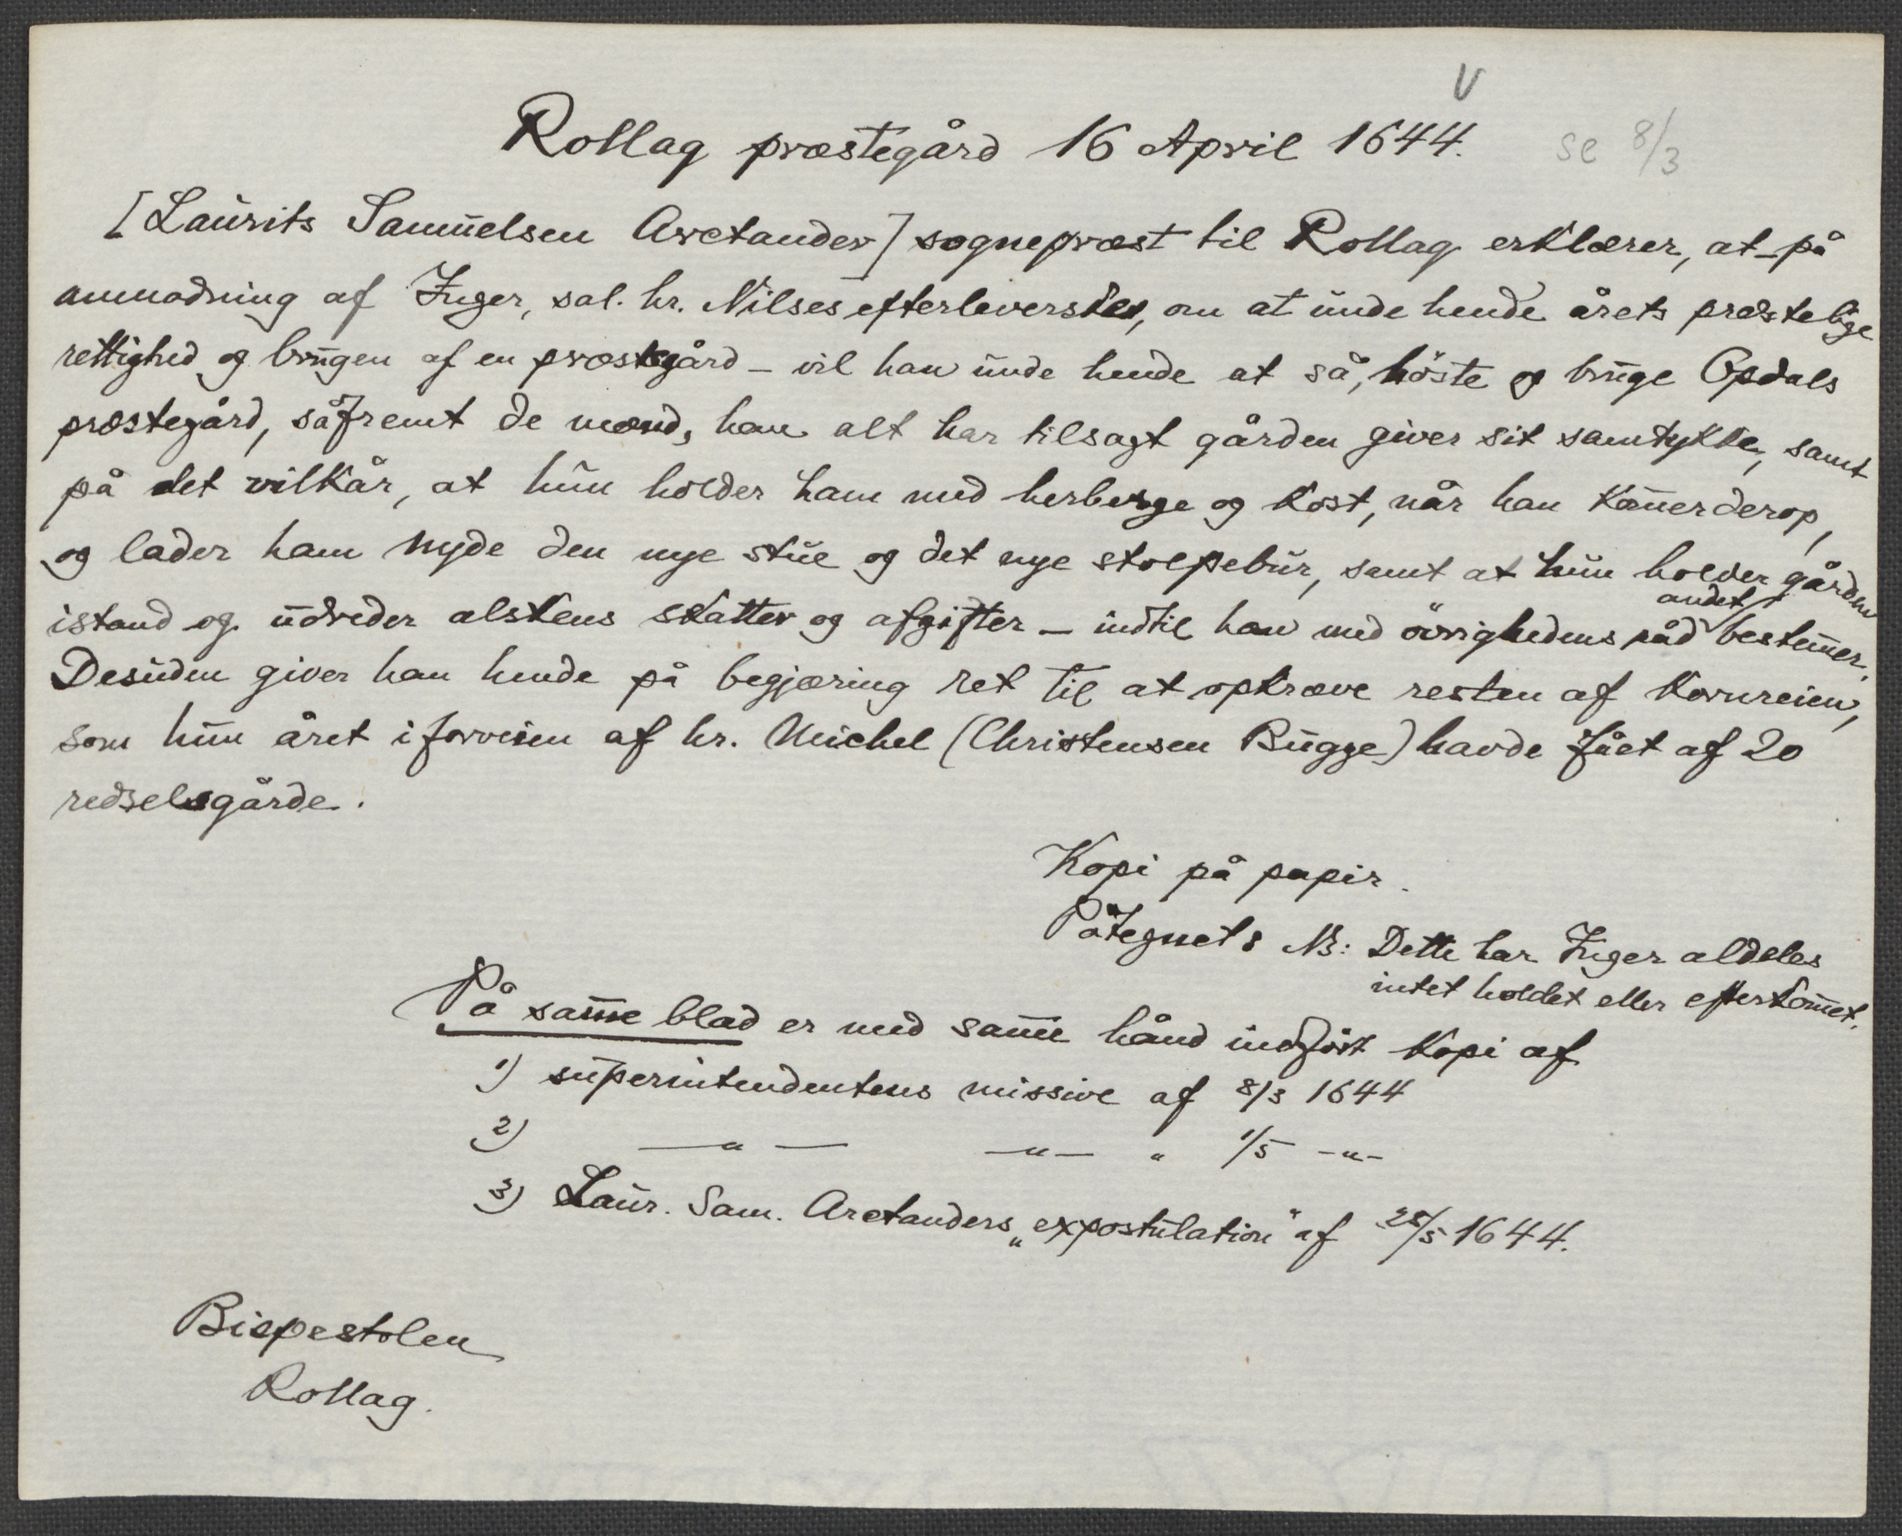 V
Rollag præstegård 16 April 1644. se 8/3
[Laurits Samuelsen Arctander] sognepræst til Rollag erklærer, at på
anmodning af Inger, sal. hr. Nilses efterleverskes, om at unde hende årets præstelige
rettighed og brugen af en præstegård – vil han unde hende at så, höste og bruge Opdals
præstegård, såfremt de mænd, han alt har tilsagt gården giver sit samtykke, samt
på det vilkår, at hun holder ham med herberge og kost, når han kom̄er derop,
og lader ham nyde den nye stue og det nye stolpebur, samt at hun holder gården
istand og udreder alskens skatter og afgifter – indtil han med övrighedens råd andet bestem̄er.
Desuden giver han hende på begjæring ret til at opkræve resten af kornreien,
som hun året iforveien af hr. Michel (Christensen Bugge) havde fået af 20
redselsgårde.
Kopi på papir.
Påtegnet: NB: Dette har Inger aldeles
intet holdet eller efterkom̄et.
På sam̄e blad er med sam̄e hånd indfört kopi af
1) superintendentens missive af 8/3 1644
2) —„— —„— „ 1/5 -„-
3) Laur. Sam. Arctanders „expostulation" af 25/5 1644.
Bispestolen
Rollag.